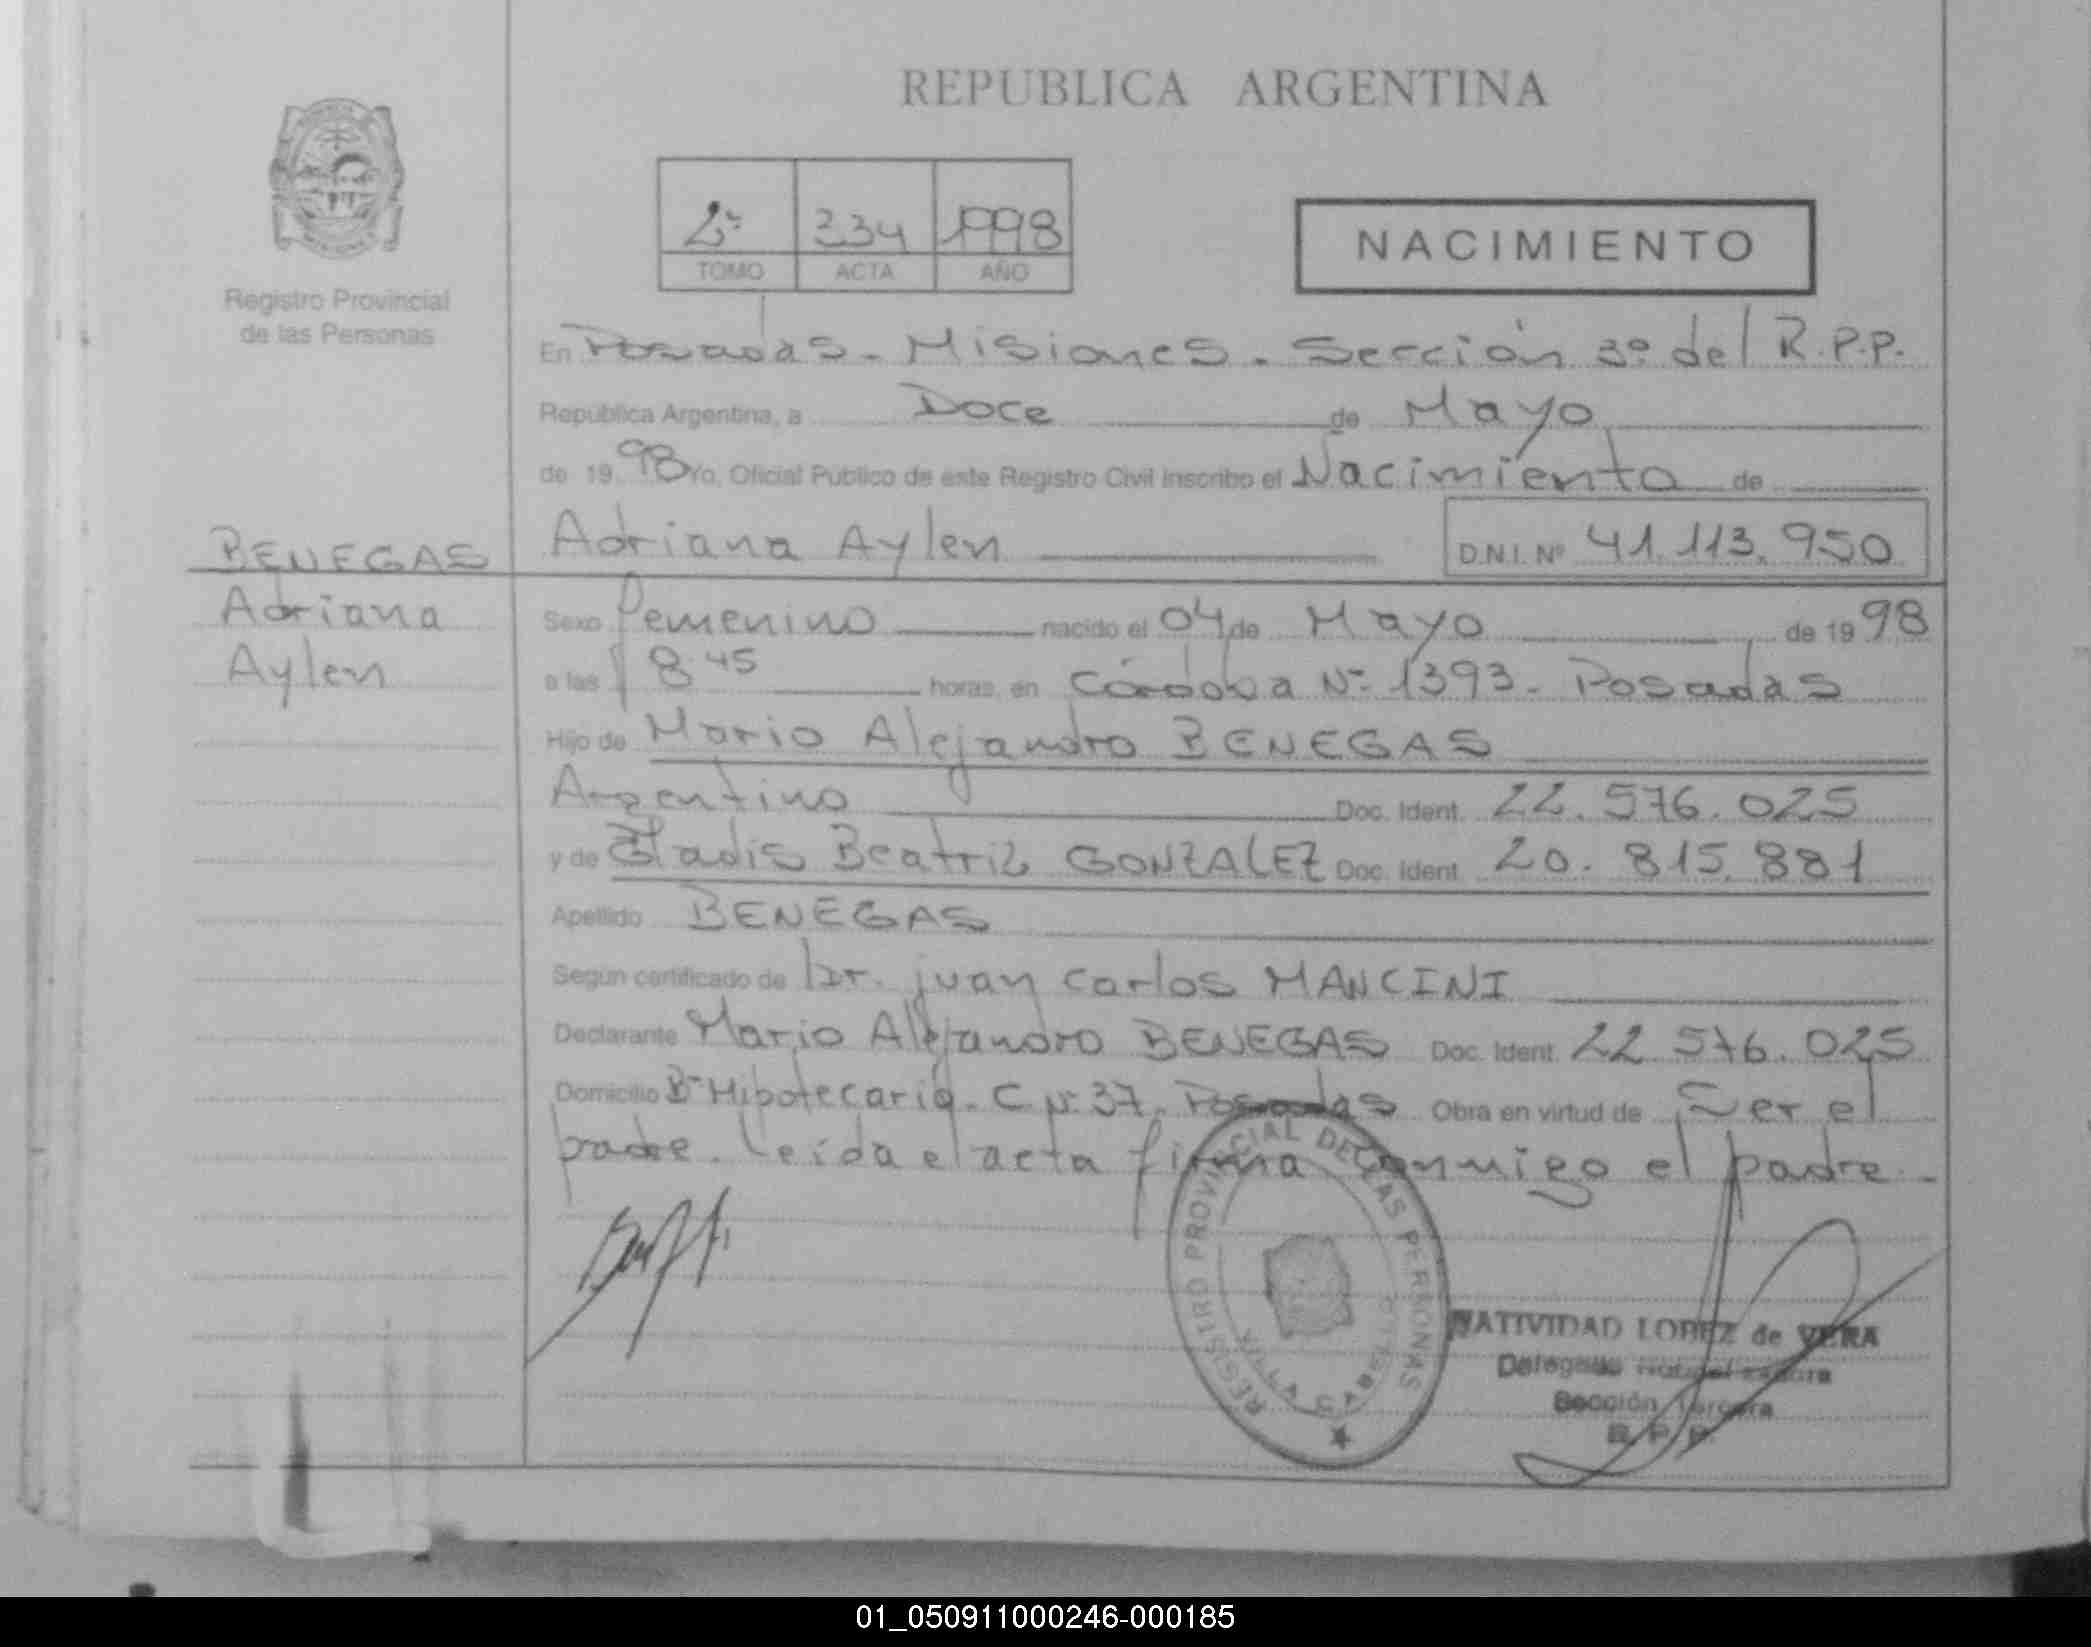 REPUBLICA ARGENTINA
2º 334 1998
TOMO ACTA AÑO
NACIMIENTO
Registro Provincial
de las Personas
En Posadas - Misiones - Sección 3º del R.P.P.
República Argentina, a Doce de Mayo
de 19 98 Yo, Oficial Público de este Registro Civil inscribo el Nacimiento de
BENEGAS
Adriana
Aylen
Adriana Aylen D.N.I. Nº 41.113.950
Sexo Femenino nacido el 04 de Mayo de 19 98
a las 8:45 horas, en Córdoba Nº 1393 - Posadas
Hijo de Mario Alejandro BENEGAS
Argentino Doc. Ident. 22.576.025
y de Gladis Beatriz GONZALEZ Doc. Ident. 20.815.881
Apellido BENEGAS
Según certificado de Dr. juan Carlos MANCINI
Declarante Mario Alejandro BENEGAS Doc. Ident. 22.576.025
Domicilio Bº Hipotecario - C Nº 37. Posadas Obra en virtud de Ser el
padre. Leída el acta firma conmigo el padre -
REGISTRO PROVINCIAL DE LAS PERSONAS
VILLA CABELLO
NATIVIDAD LOPEZ de VERA
Sección Tercera
R. P. P.
01_050911000246-000185